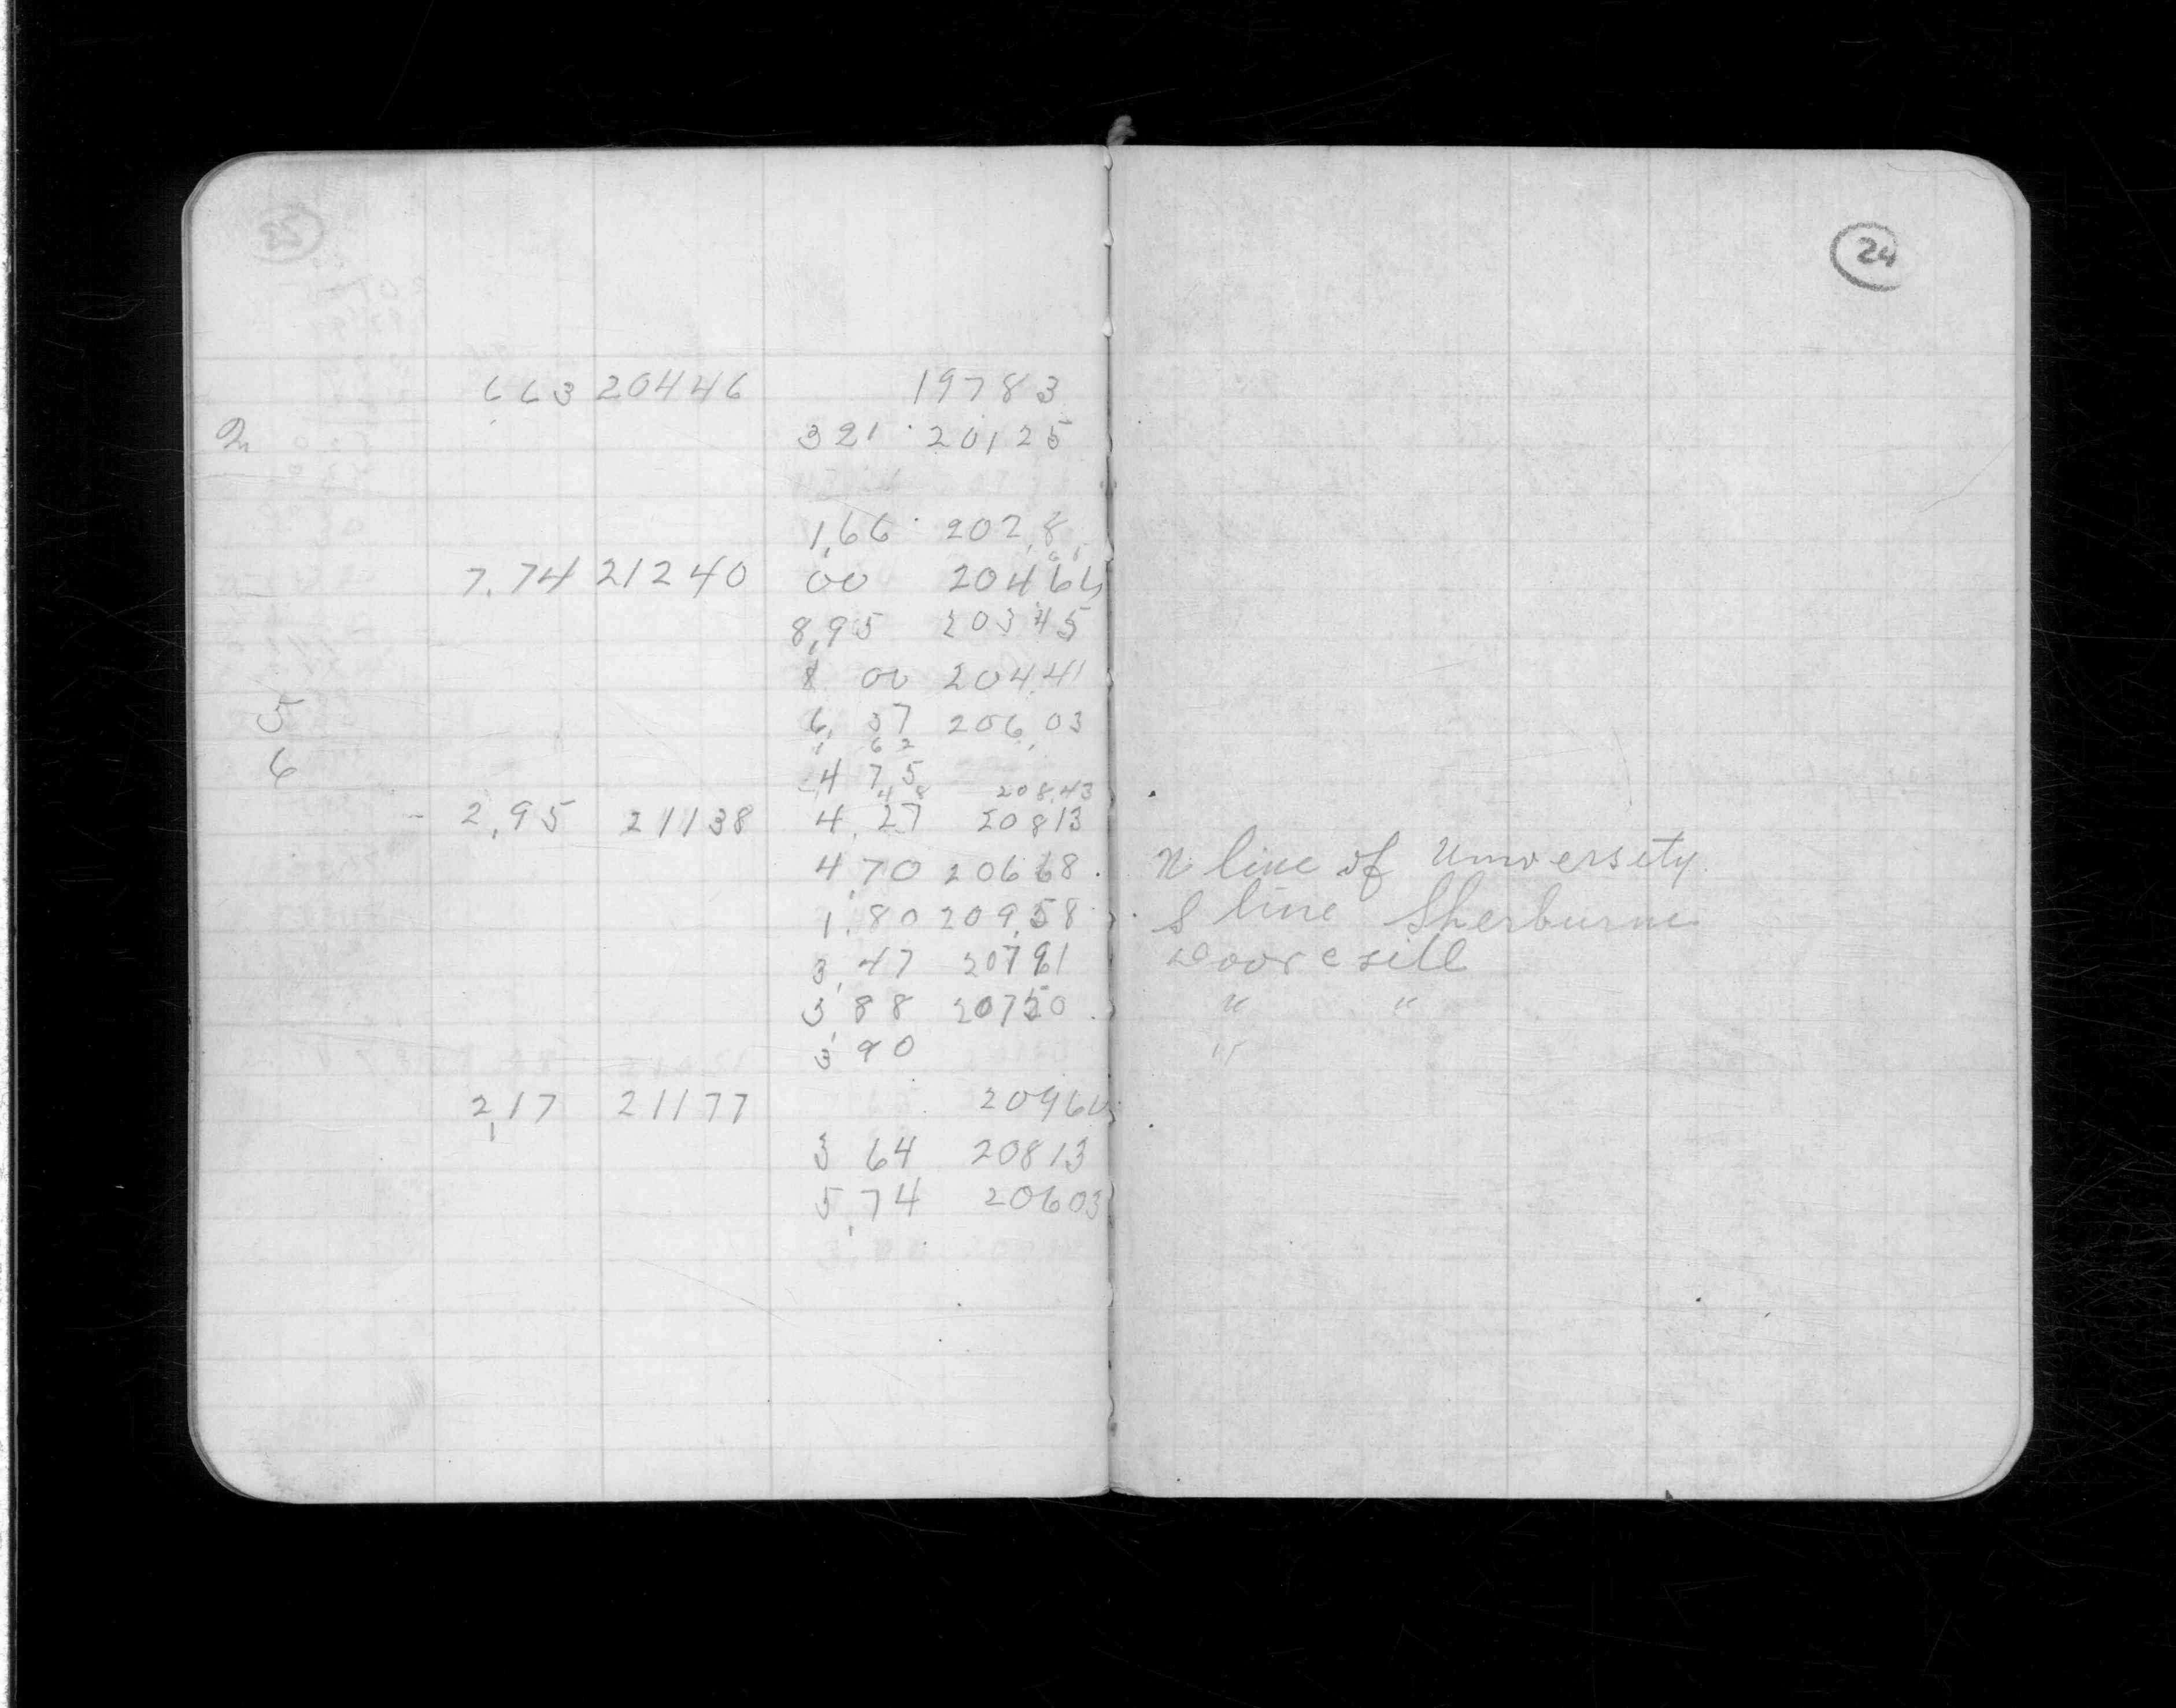 24
663 20446 19783
2 321 20125
1,66 202,8
7.74 21240 00 204.64
8,95 20345
8 00 204.41
5 6, 37 206,03
62
6 4 75
48 208.43
- 2,95 21138 4.27 20813
4,70 20668 . N line of University.
1.80 209,58 S line Sherburne
3,47 20791 Doore sill
3,88 20750 " "
3,90 "
2,17 21177 20960
3 64 20813
5,74 20603